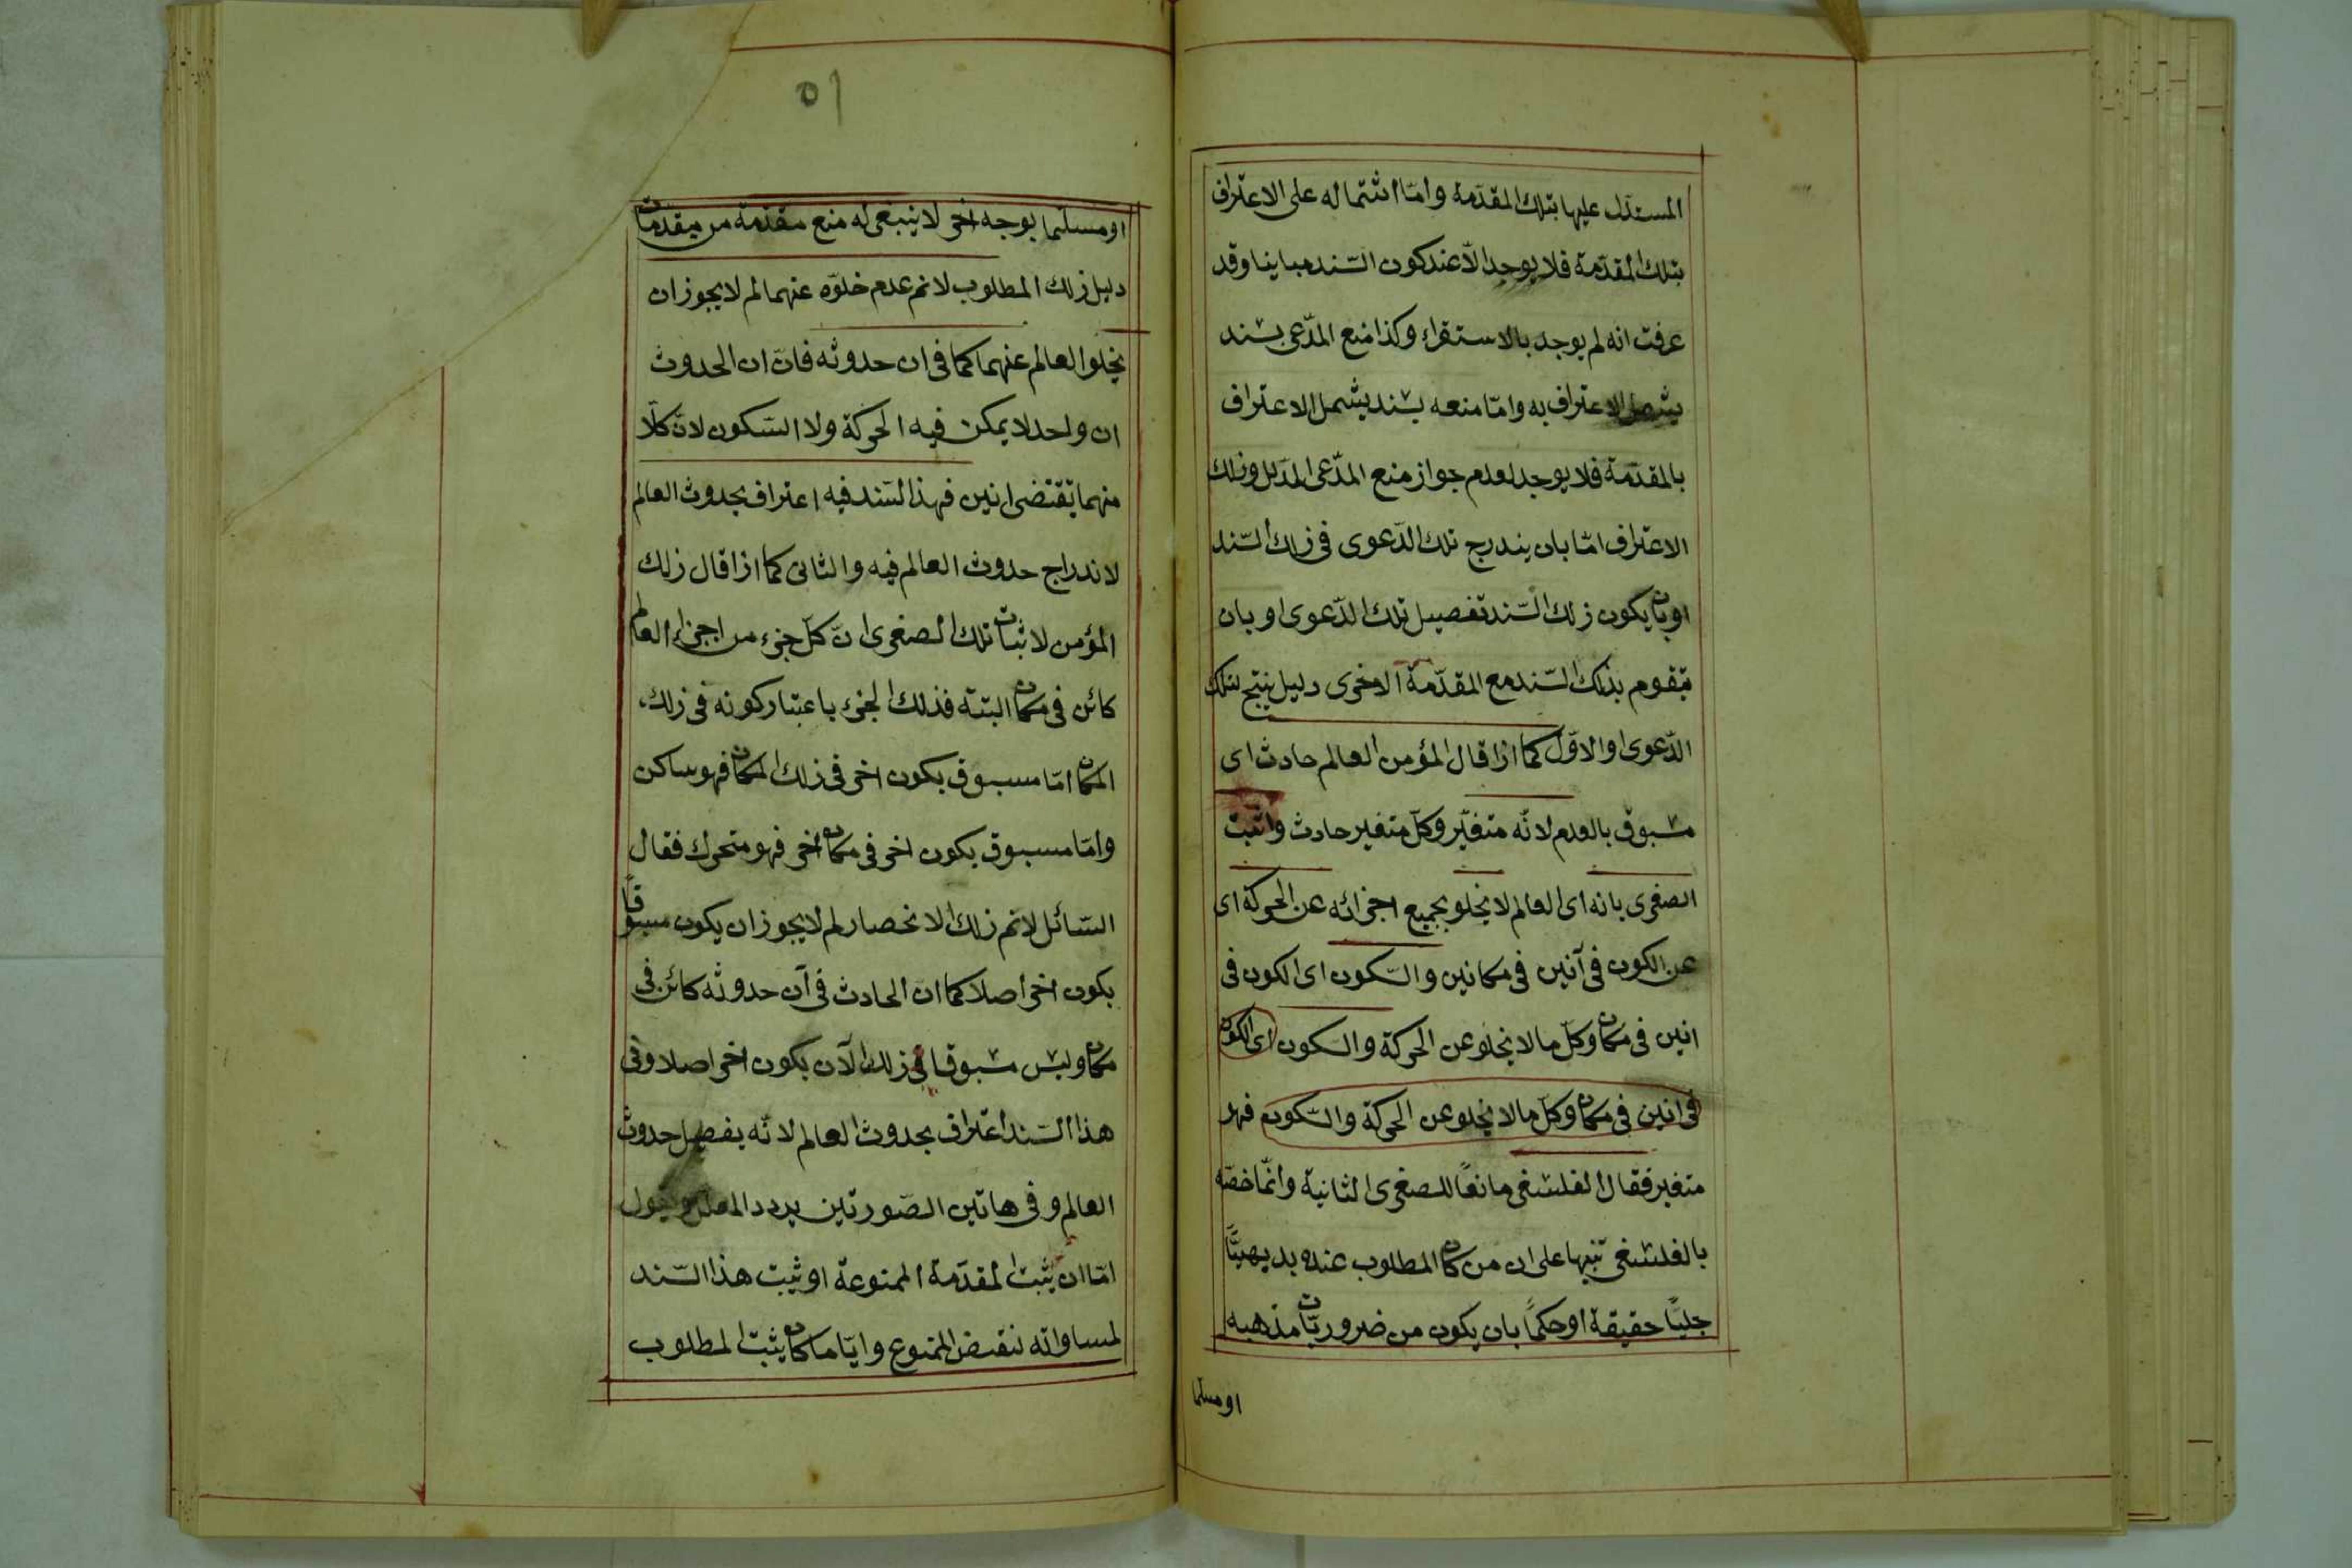 المستدل عليها بتلك المقدّمة وامّا اشتماله على الاعتراف
بتلك المقدّمة فلا يوجد الّا عند كون السّند مباينا وقد
عرفت انه لم يوجد بالاستقراء وكذا منع المدّعى بسند
يشمل الاعتراف به وامّا منعه بسند يشمل الاعتراف
بالمقدّمة فلا يوجد لعدم جواز منع المدّعى المدلل وذلك
الاعتراف امّا بان يندرج تلك الدّعوى فى ذلك السّند
او بان يكون ذلك السّند تفصيل تلك الدّعوى او بان
يتقوم بذلك السّند مع المقدّمة الاخرى دليل ينتج لتلك
الدّعوى والاوّل كما اذا قال المؤمن العالم حادث اى
مسبوق بالعدم لانّه متغيّر وكلّ متغير حادث واثبت
الصغرى بانه اى العالم لا يخلو بجميع اجزائه عن الحركة اى
عن الكون فى آنين فى مكانين والسّكون اى الكون فى
انين فى مكان وكلّ ما لا يخلو عن الحركة والسكون اى الكون
فى انين فى مكان وكلّ ما لا يخلو عن الحركة والسّكون فهو
متغير فقال الفلسفى مانعًا للصغرى الثانية وانّما خصّه
بالفلسفى تنبيها على ان من كان المطلوب عنده بديهيًّا
جليًّا حقيقة او حكمًا بان يكون من ضروريّات مذهبه
او مسلما
٥١
او مسلّما بوجه اخر لا ينبغى له منع مقدّمة من مقدمات
دليل ذلك المطلوب لا نم عدم خلوّه عنهما لم لا يجوز ان
يخلو العالم عنهما كما فى ان حدوثه فانّ ان الحدوث
ان واحد لا يمكن فيه الحركة ولا السّكون لانّ كلّا
منهما تقتضى انين فهذا السّند فيه اعتراف بحدوث العالم
لاندراج حدوث العالم فيه والثانى كما اذا قال ذلك
المؤمن لاثبات تلك الصغرى انّ كلّ جزء من اجزاء العالم
كائن فى مكان البتة فذلك الجزء باعتبار كونه فى ذلك
المكان امّا مسبوق بكون اخر فى ذلك المكان فهو ساكن
وامّا مسبوق بكون اخر فى مكان اخر فهو متحرك فقال
السّائل لا نم ذلك الانحصار لم لا يجوز ان يكون مسبوقًا
بكون اخر اصلا كما ان الحادث فى آن حدوثه كائن فى
مكان وليس مسبوقا فى ذلك الآن بكون اخر اصلا وفى
هذا السّند اعتراف بحدوث العالم لانّه يفصل حدوث
العالم وفى هاتين الصّورتين يردد المعلل ويقول
امّا ان يثبت المقدّمة الممنوعة او يثبت هذا السّند
لمساواته لنقيض الممنوع وايّا ما كان يثبت المطلوب